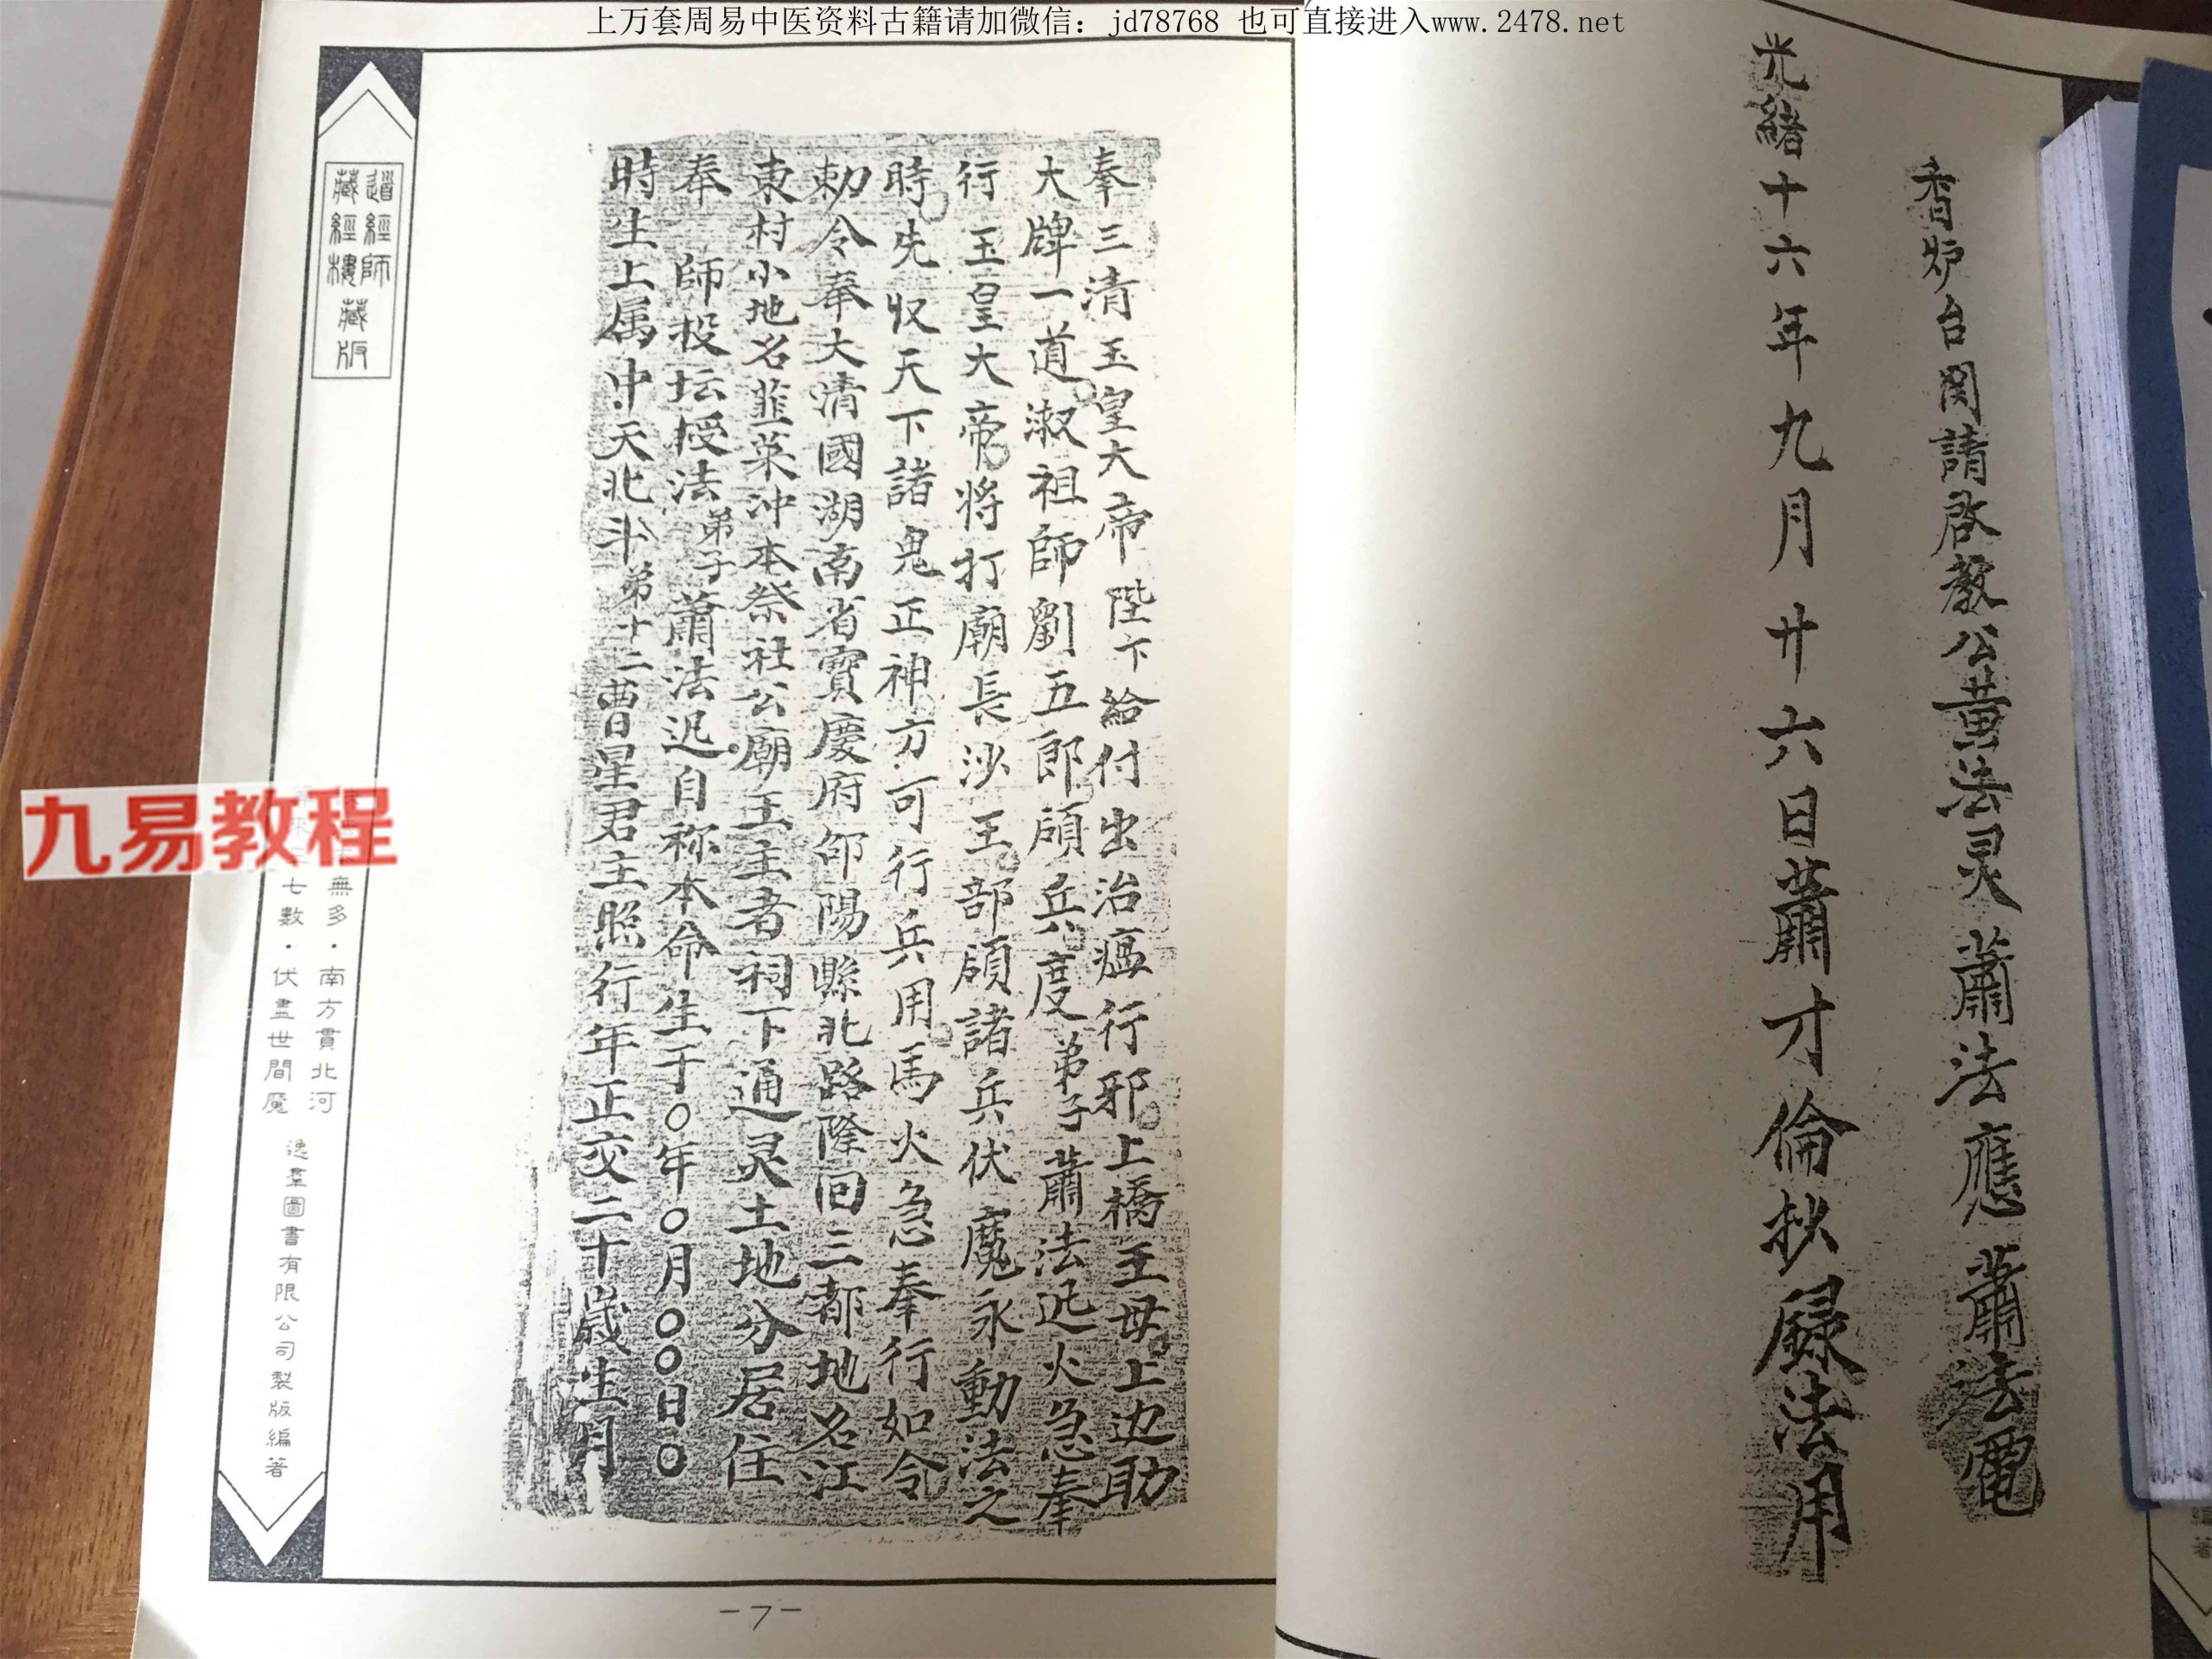 上万套周易中医资料古籍请加微信：jd78768 也可直接进入www.2478.net
香炉台図請啓教公黄法灵 蕭法應 蕭法電
光緒十六年九月廿六日蕭才倫抄録法用
奉三清玉皇大帝陛下給付出治瘟行邪上橋王母上边助
大牌一道淑祖師劉五郎頋兵度弟子蕭法迅火急奉
行玉皇大帝将打廟長沙王部頋諸兵伏魔永動法之
時先収天下諸鬼正神方可行兵用馬火急奉行如令
勅令奉大清國湖南省寳慶府邵陽縣北路隆回三都地名江
東村小地名韮菜沖本祭社公廟王主者祠下通灵土地分居住
奉 師投坛授法弟子蕭法迅自称本命生于〇年〇月〇〇日〇
時生上属中天北斗弟十二曹星君主照行年正交二十歲生月
道經師
藏經樓
藏版
無多·南方貫北河
七數·伏盡世間魔
逸羣圖書有限公司製版編著
九易教程
-7-